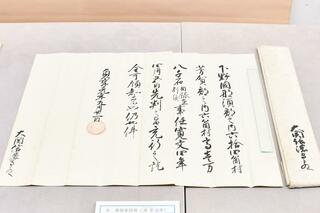 下野國那須郡之内六拾四箇村
芳賀郡之内六箇村高壱万
八千石目録在別紙事任寛文四年
四月五日先判之旨充行之訖
全可領知者也仍如件
貞享元年九月廿一日
大関信濃守とのへ
大関信濃守とのへ